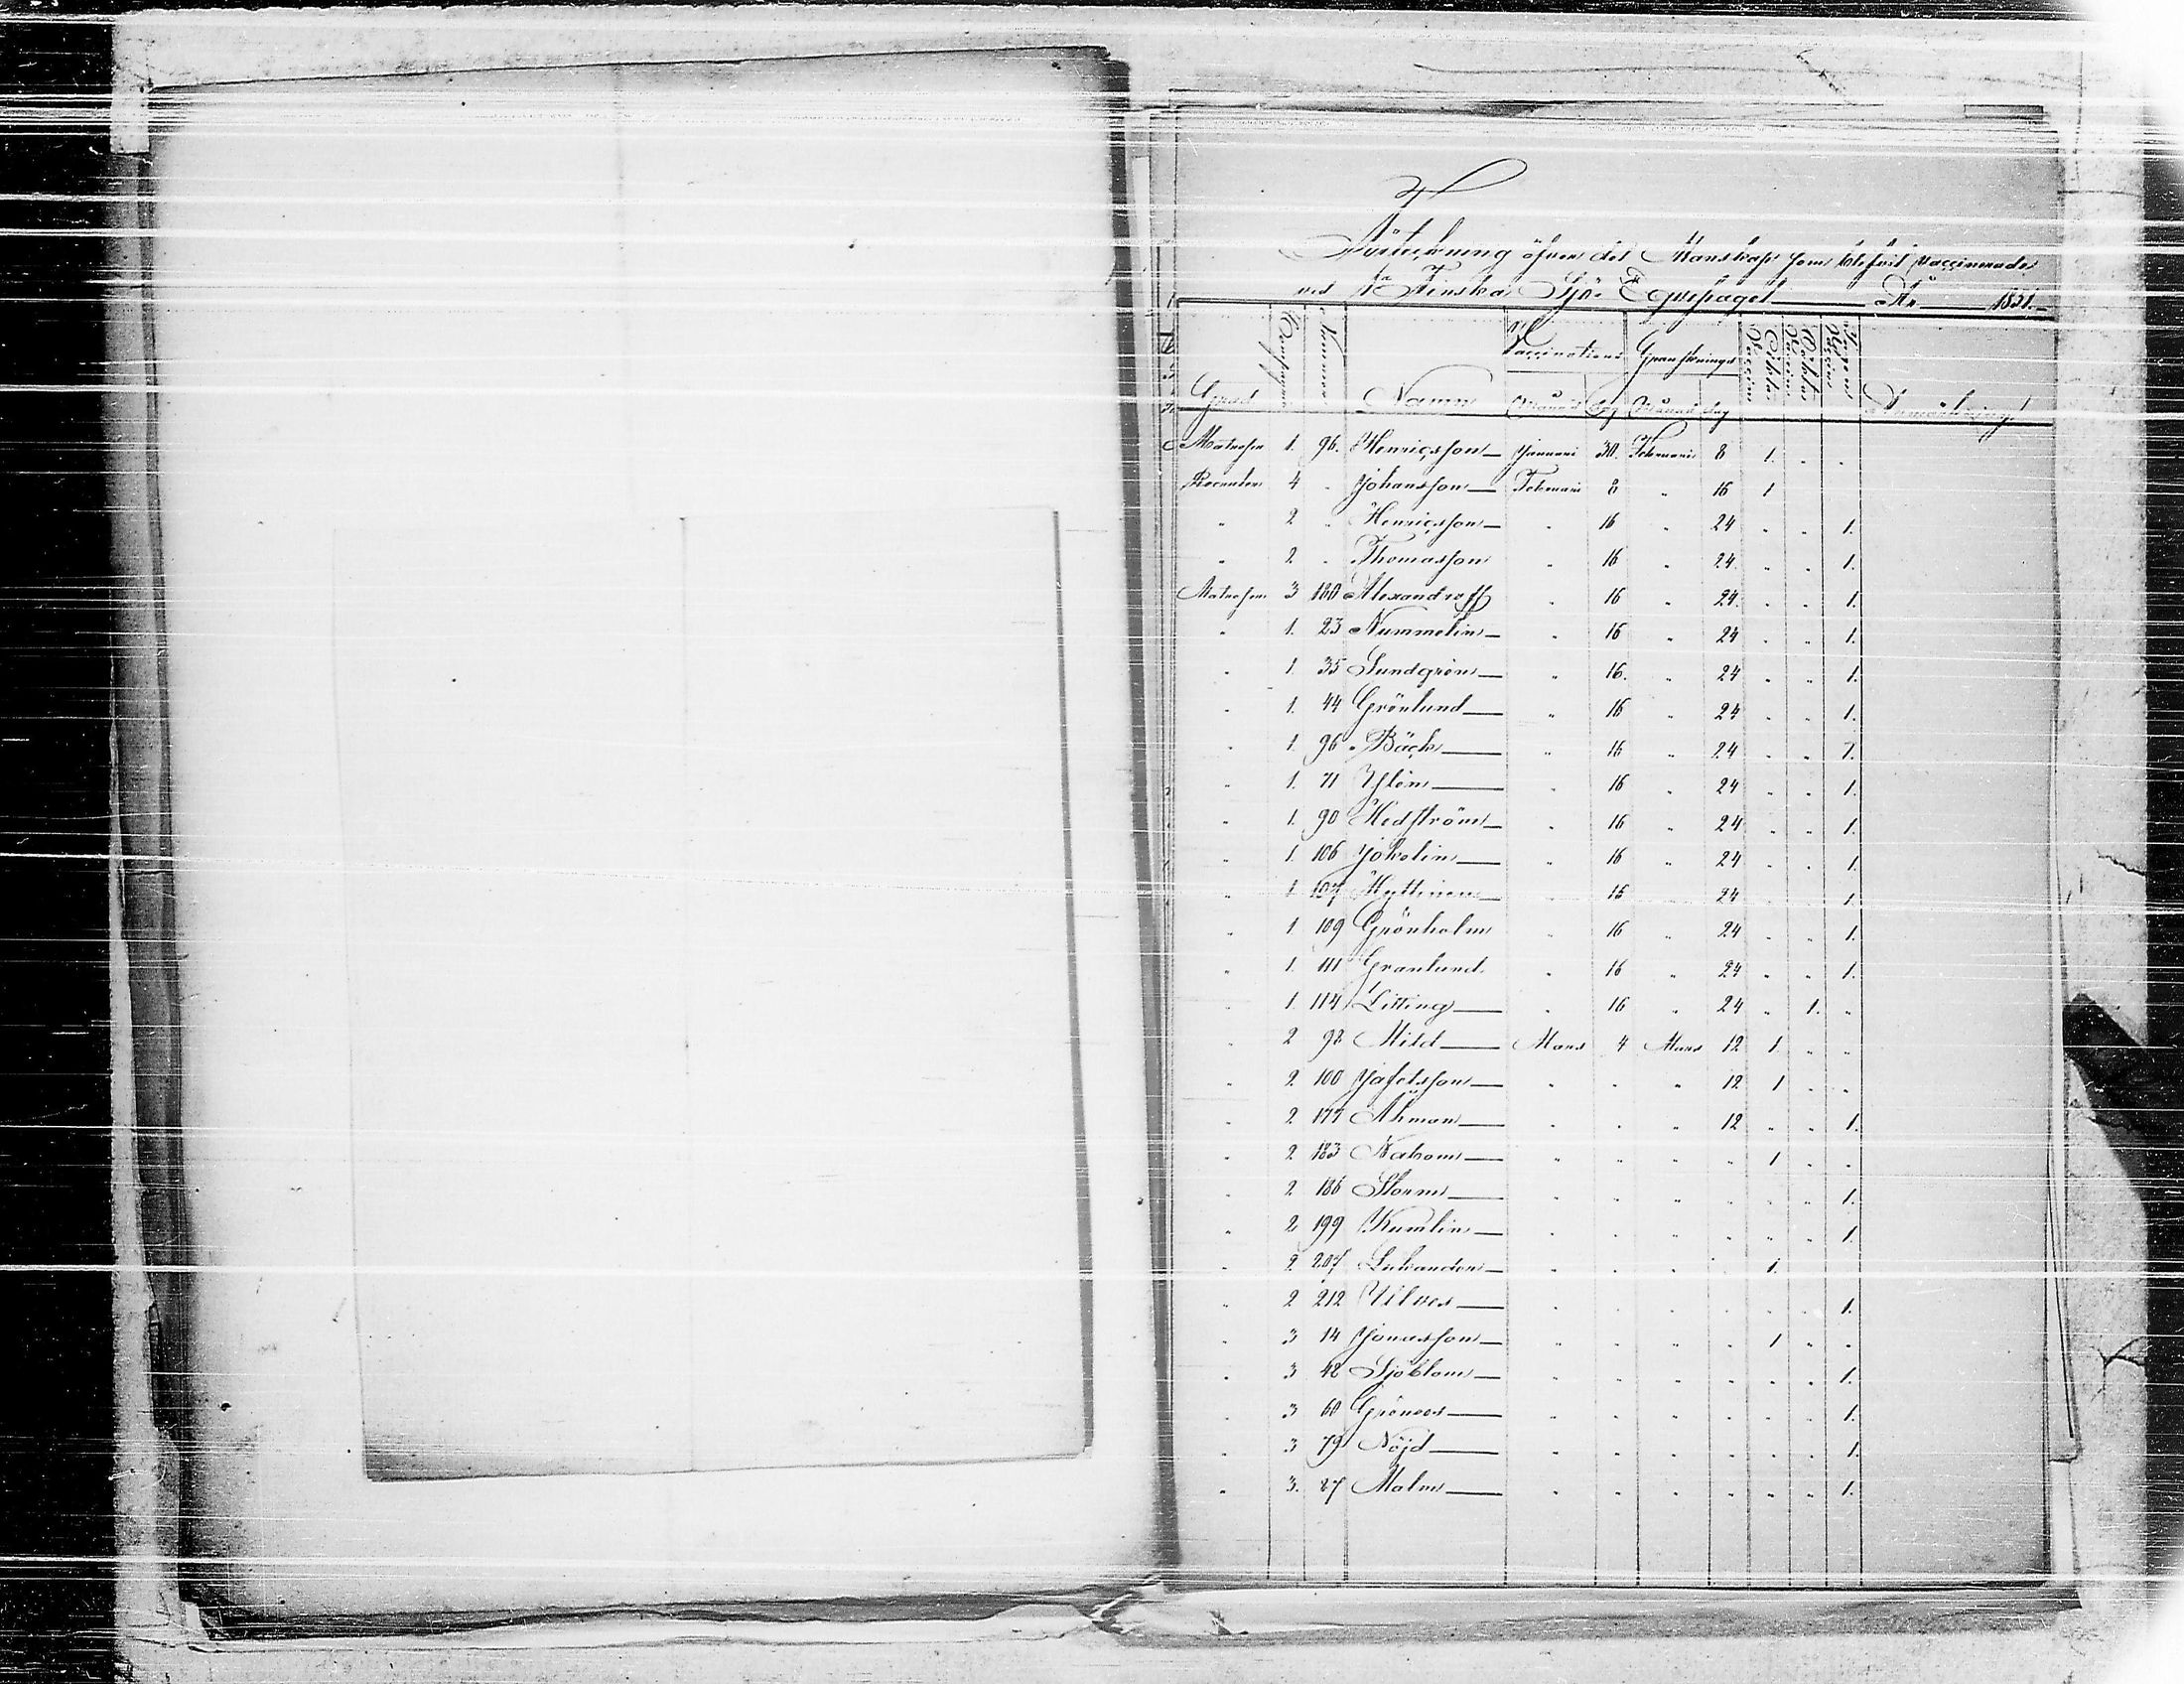 Förteckning öfver det Manskap som blifvit vaccinerade
ved 1a Finska Sjö-Equipaget År 1831.
Grad Compagnie Nummer Namn Vaccinations Gransknings Äkta Vaccin Oäkta Vaccin Ingen Vaccin Anmärkning
Månad dag Månad dag
Matrosen 1. 96. Henricsson Januari 30. Februari 8 1. . .
Recruten 4 . Johansson Februari 8 " 16 1
" 2 " Henricsson " 16 " 24 . . 1.
" 2 . Thomasson . 16 " 24. . . 1.
Matrosen 3 180 Alexandroff . 16 " 24. . . 1.
" 1. 23 Nummelin . 16 " 24 . . 1.
" 1 35 Sundgrén " 16. " 24 . . 1.
" 1. 44 Grönlund " 16 " 24 . . 1.
" 1. 96 Bäck " 16 " 24 . . 1.
" 1. 71 Ylén . 16 " 24 . . 1.
" 1. 90 Hedström . 16 " 24 . . 1.
" 1. 106 Jokelin " 16 " 24 . . 1.
" 1 107 Hyttinen . 16 " 24 . . 1.
" 1 109 Grönholm " 16 " 24 . . 1.
" 1. 111 Granlund " 16 " 24 . . 1.
" 1. 114 Litting . 16 " 24 . 1. "
" 2 98 Mild Mars 4 Mars 12 1. . "
" 2 100 Jafetsson . . " 12 1 . .
" 2 177 Åhman . . " 12 . . 1.
" 2 183 " " " " 1 . .
" 2 186 Storm . . " . . . 1.
" 2 199 Kumlin . . " . . . 1.
" 2 207 . . . . 1.
" 2 212 Ulves . . . . . . 1.
" 3 14 Jonasson . . " . 1 . .
" 3 48 Sjöblom " . . . . . 1.
" 3 60 Grönroos . . . . . . 1.
" 3 79 Nöjd . . . . . . 1.
" 3. 87 Malm . . . . . . 1.